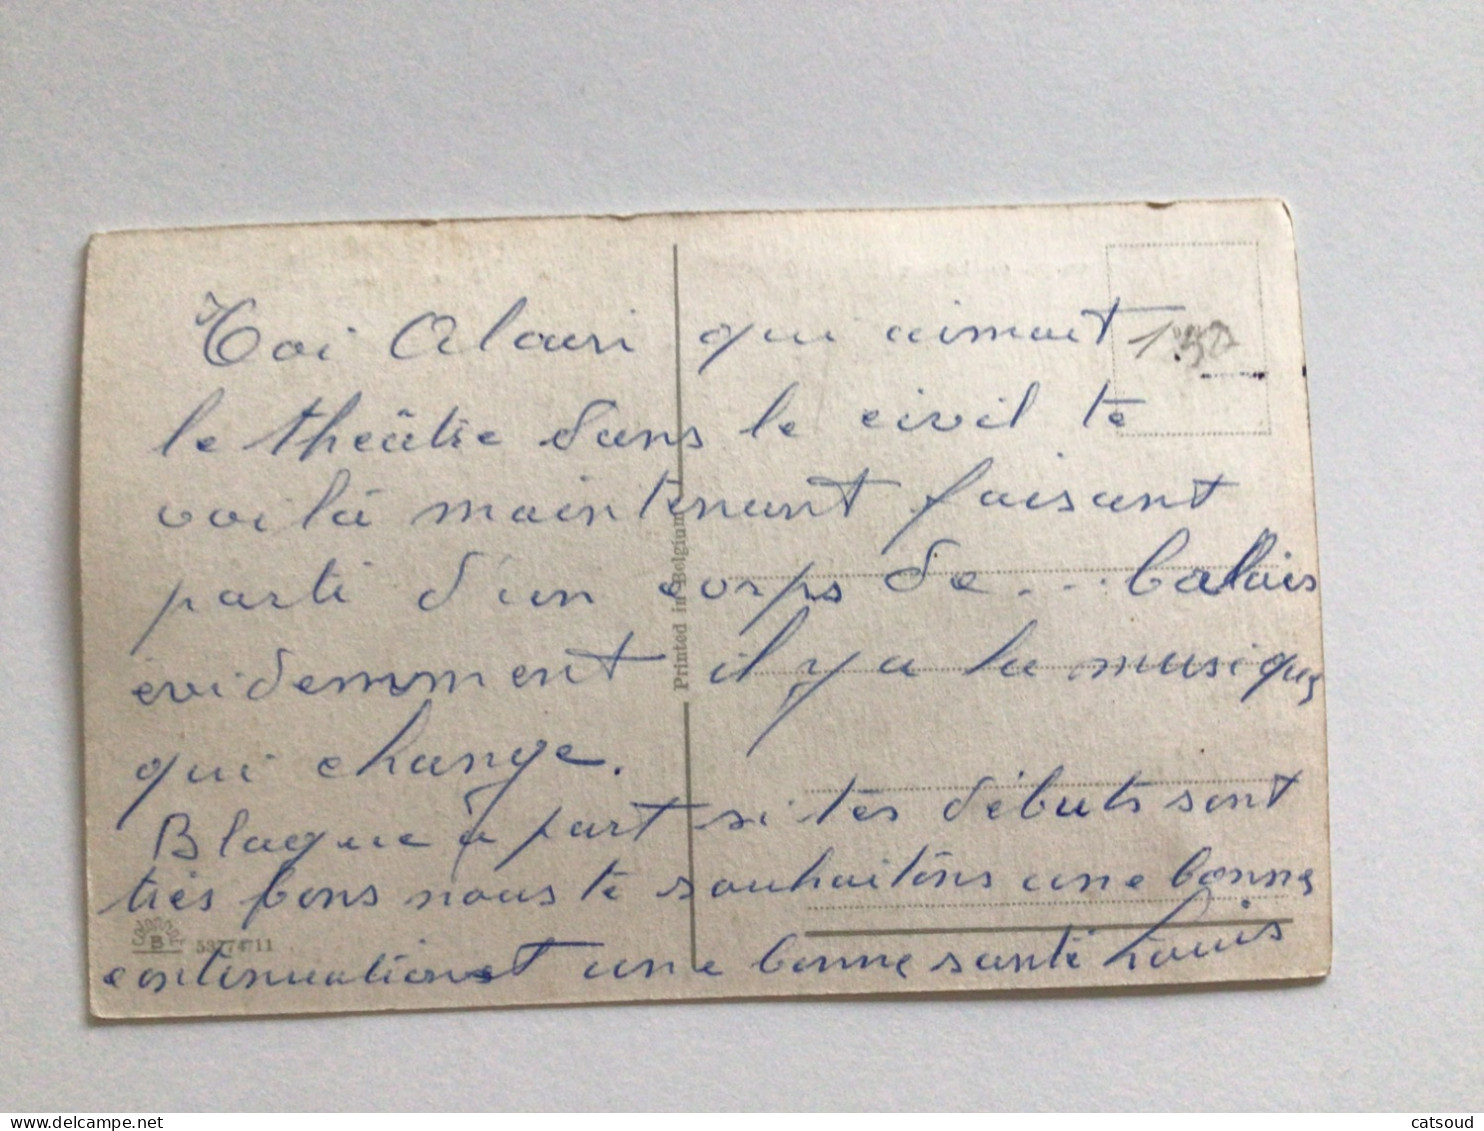 Toi Alain qui aimait
1.50
le théâtre dans le civil te
voilà maintenant faisant
parti d'un corps de... balais
évidemment il y a la musique
qui change.
Blague à part si tes débuts sont
très bons nous te souhaitons une bonne
continuation et une bonne santé Louis
Printed in Belgium
Colorprint
B
53774/11
www.delcampe.net
catsoud